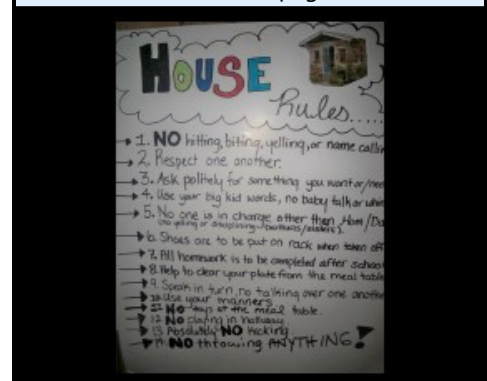 HOUSE
Rules.....
1. NO hitting, biting, yelling, or name callin
2. Respect one another.
3. Ask politely for something you want or/nee
4. Use your big kid words, no baby talk or whin
5. No one is in charge other then Mom/Da
(no yelling or disciplining brothers/sisters).
6. Shoes are to be put on rack when taken off
7. All homework is to be completed after school
8. Help to clear your plate from the meal table
9. Speak in turn, no talking over one anothe
10. Use your manners
11. NO toys at the meal table.
12. NO playing in hallway
13. Absolutely NO kicking
14. NO throwing ANYTHING!